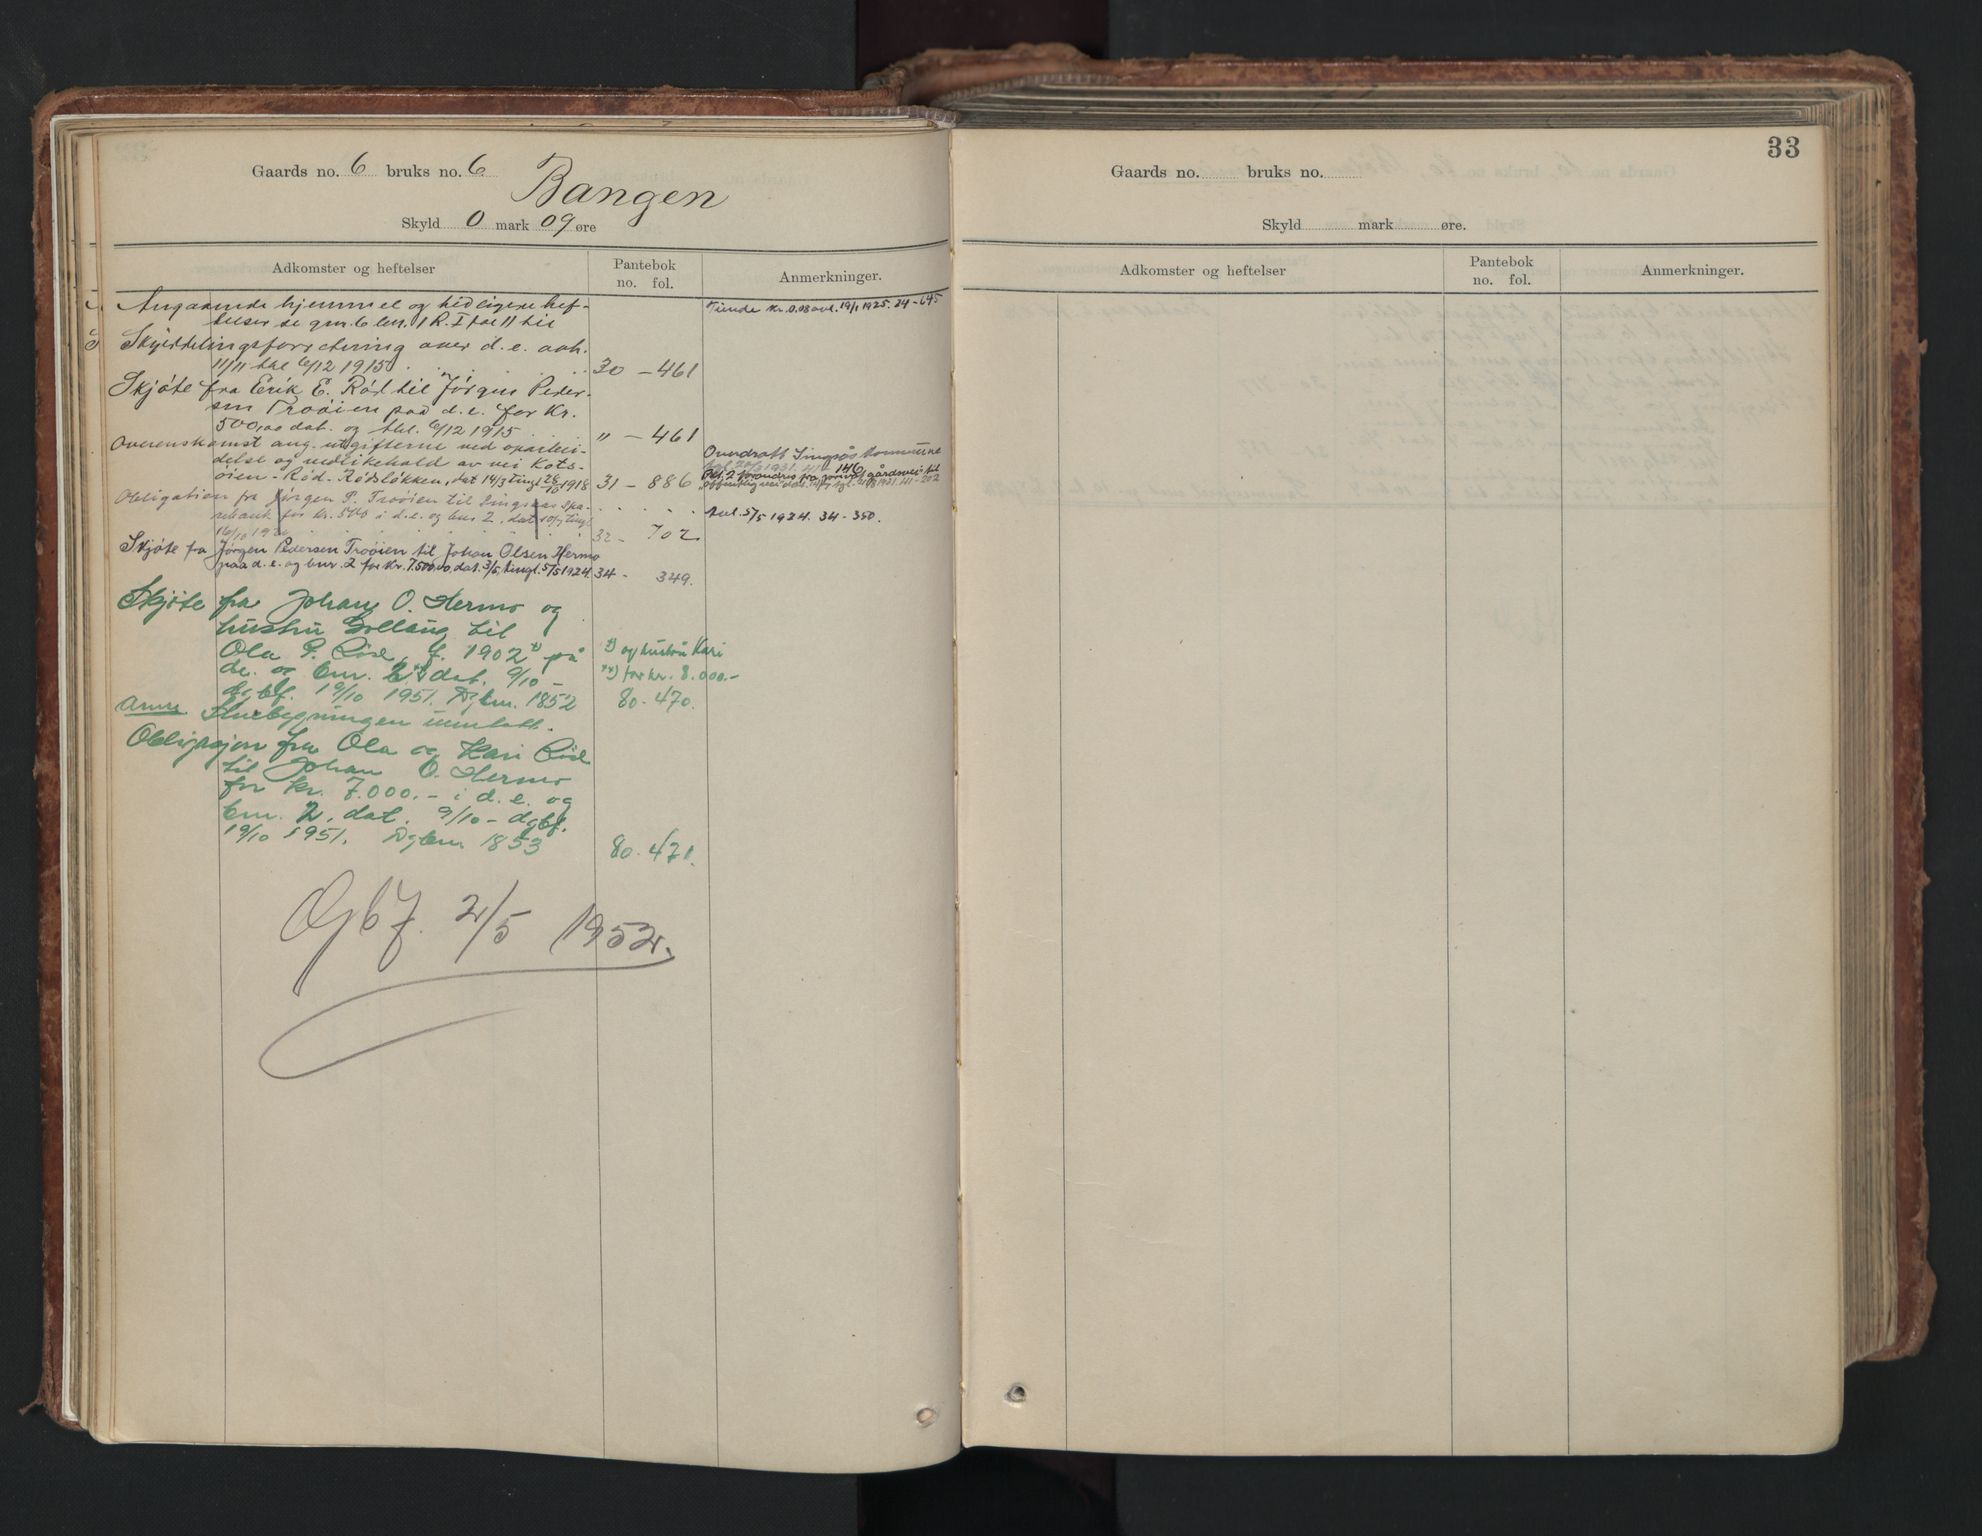 Gaards no. 6 bruks no. 6
Bangen
Skyld 0 mark 09 øre
Adkomster og heftelser
Pantebok
no. fol.
Anmerkninger.
Angaaende hjemmel og tidligere hef-
telser se gnr. 6 bnr. 1 R. I fol 11
Tiende kr. 0.08 avl. 19/1 1925. 34-645
Skylddelingsforretning over d. e. avh.
11/11 tbl 6/12 1915 30 - 461
Skjøte fra Erik E. Rød til Jørgen Peder-
sen Troøien paa d. e. for Kr.
500,00 dat. og tbl. 6/12 1915 " - 461
Overenskomst ang. utgifterne ved oparbei-
delse og vedlikehold av vei Kots-
øien - Rød - Rødsløkken, dat 14/3 tingl 28/10 1918 31 - 886
Overdratt Singsås kommune
146
Obligation fra Jørgen P. Troøien til Singsaas Spa-
rebank for Kr. 500 i d. e. og bnr 2, dat 10/9 tingl
16/10 32 - 702
Avl. 5/5 1924. 34-350.
Skjøte fra Jørgen Pedersen Troøien til Johan Olsen Hermo
paa d. e. og bnr. 2 for Kr. 7.500,00, dat. 3/5, tingl. 5/5 1924. 34 - 349.
Skjøte fra Johan O. Hermo og
hustru til
Ola P. f. 1902 *) på
de. og bnr. 2 **) dat. 9/10 -
dgbf. 19/10 1951. Dgbnr. 1852
*) og hustru Kari
**) for kr. 8.000.-
80 - 470.
Anm. innløst.
Obligasjon fra Ola og Kari
til Johan O. Hermo
for kr. 7.000.- i d. e. og
bnr. 2, dat. 9/10 - dgbf.
19/10 1951. Dgbnr. 1853 80 - 471.
Dgbf. 2/5 1952.
33
Gaards no. bruks no.
Skyld mark øre.
Adkomster og heftelser
Pantebok
no. fol.
Anmerkninger.